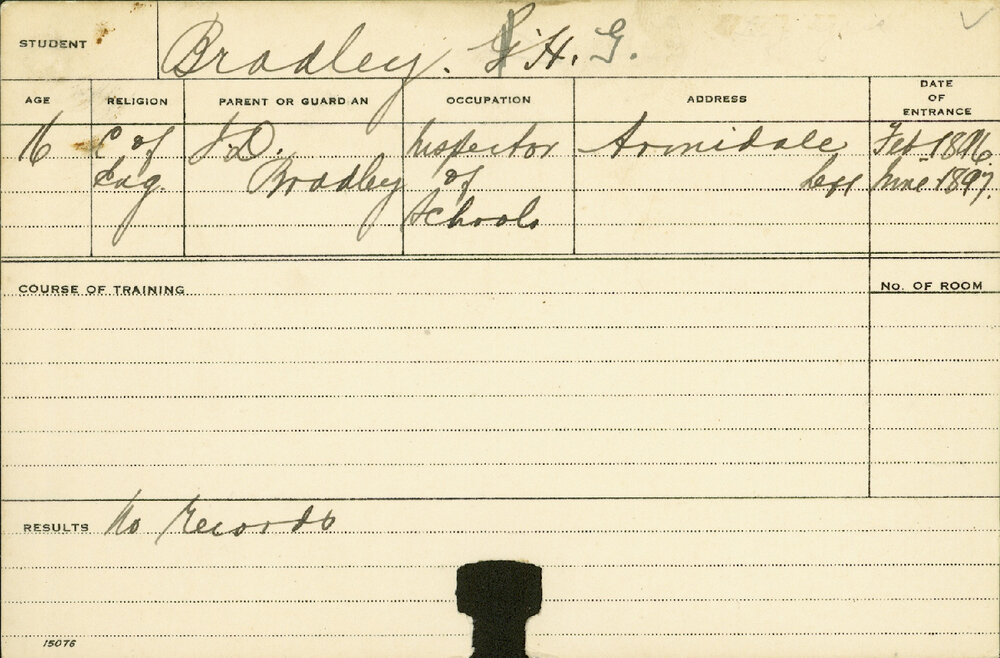 STUDENT Bradley. H. G.
AGE RELIGION PARENT OR GUARDIAN OCCUPATION ADDRESS DATE OF ENTRANCE
16 C of J.D. Inspector Armidale Feb 1896.
Eng. Bradley of left June 1897.
Schools
COURSE OF TRAINING No. OF ROOM
RESULTS No Records
15076